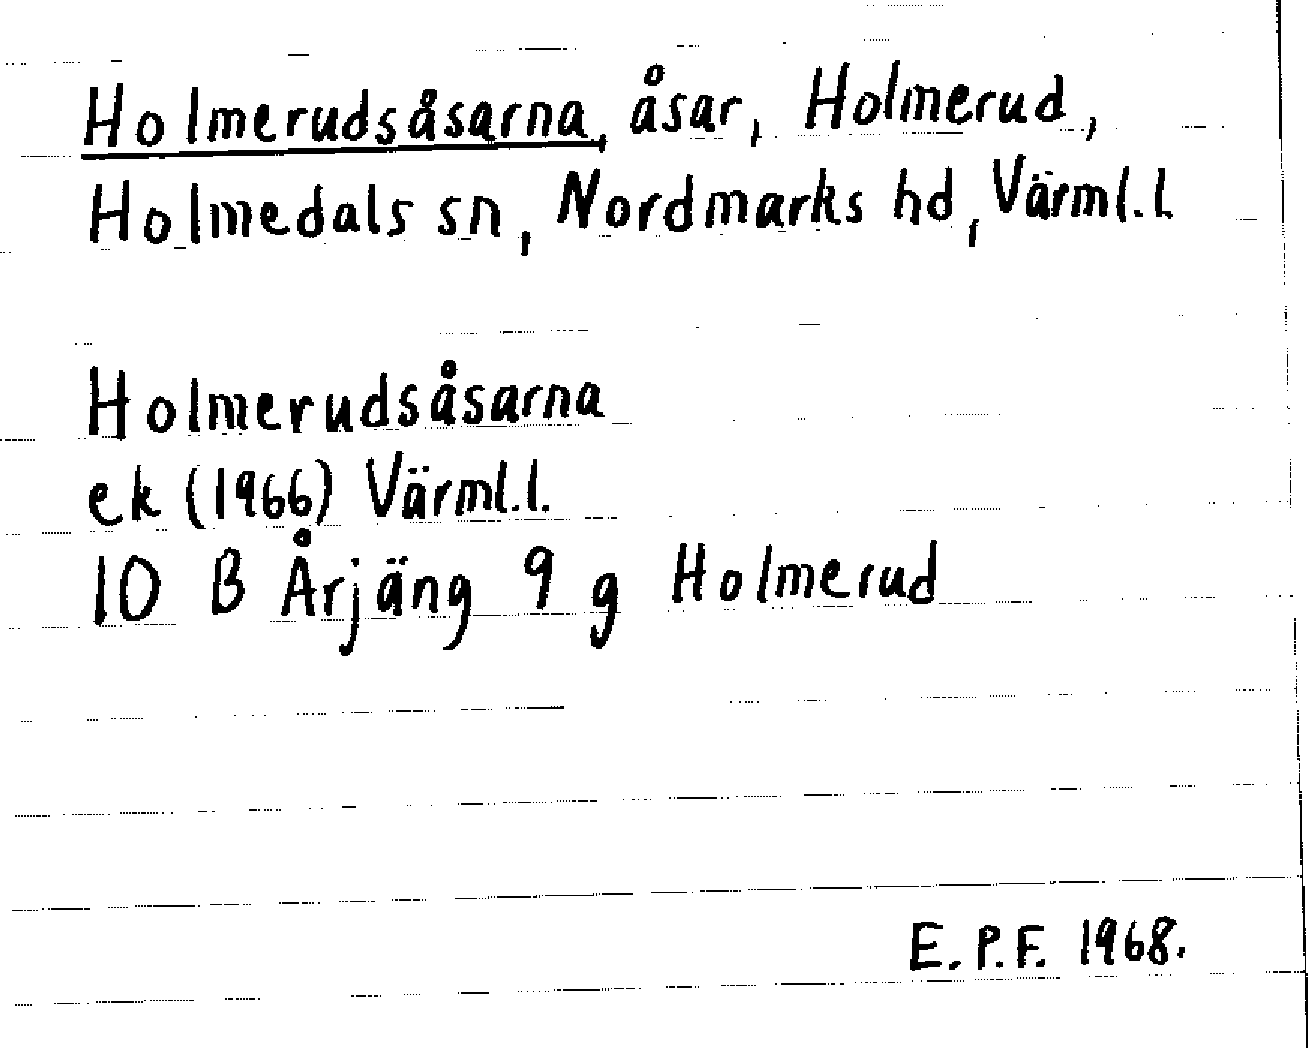 Holmerudsåsarna, åsar, Holmerud,
Holmedals sn, Nordmarks hd, Värml.l.
Holmerudsåsarna
ek (1966) Värml.l.
10 B Årjäng 9 g Holmerud
E.P.F. 1968.